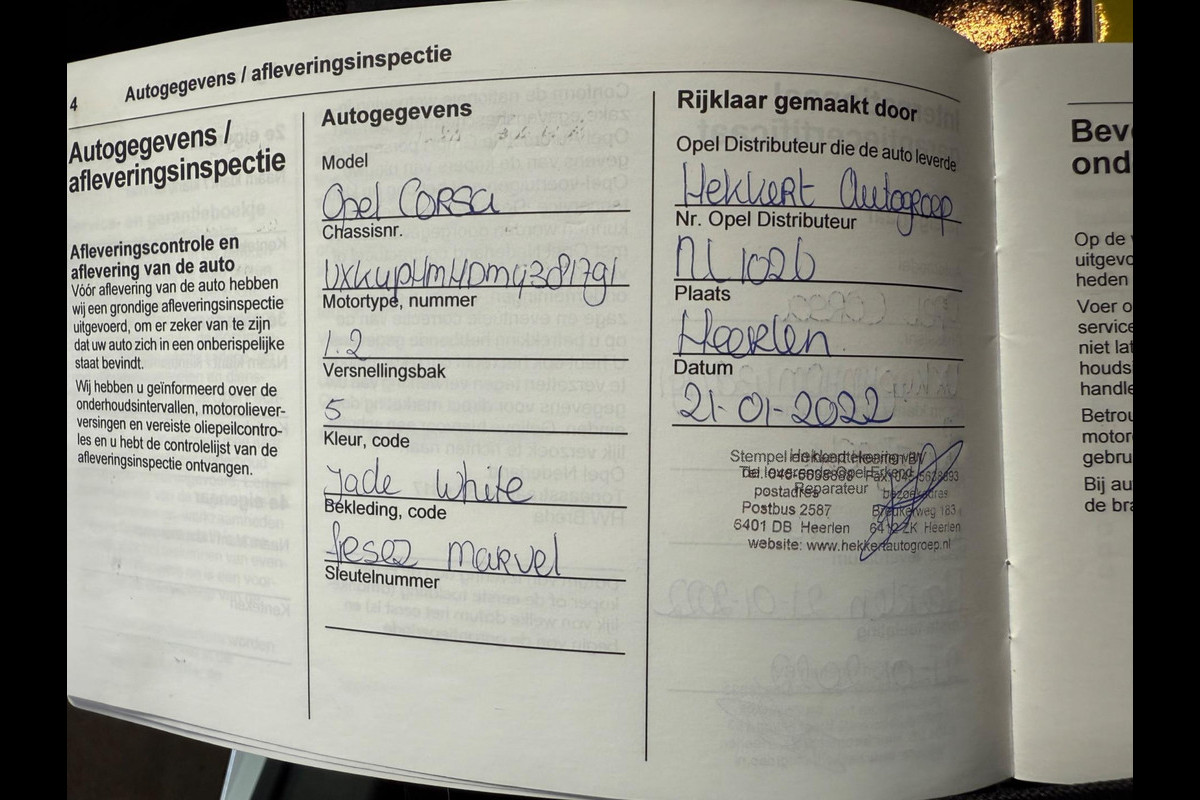 4
Autogegevens / afleveringsinspectie
Autogegevens /
afleveringsinspectie
Afleveringscontrole en
aflevering van de auto
Vóór aflevering van de auto hebben
wij een grondige afleveringsinspectie
uitgevoerd, om er zeker van te zijn
dat uw auto zich in een onberispelijke
staat bevindt.
Wij hebben u geïnformeerd over de
onderhoudsintervallen, motoroliever-
versingen en vereiste oliepeilcontro-
les en u hebt de controlelijst van de
afleveringsinspectie ontvangen.
Autogegevens
Model
Opel CORSA
Chassisnr.
Motortype, nummer
1.2
Versnellingsbak
5
Kleur, code
Jade White
Bekleding, code
marvel
Sleutelnummer
Rijklaar gemaakt door
Opel Distributeur die de auto leverde
Hekkert Autogroep
Nr. Opel Distributeur
NL 1026
Plaats
Heerlen
Datum
21-01-2022
Stempel en handtekening van
de leverende Opel Erkend
Reparateur
postadres bezoekadres
Postbus 2587 183
6401 DB Heerlen 6412 ZK Heerlen
website: www.hekkertautogroep.nl
Op de
heden
Voer o
service
niet lat
houds
handle
Betrou
motor
gebru
Bij au
de bra